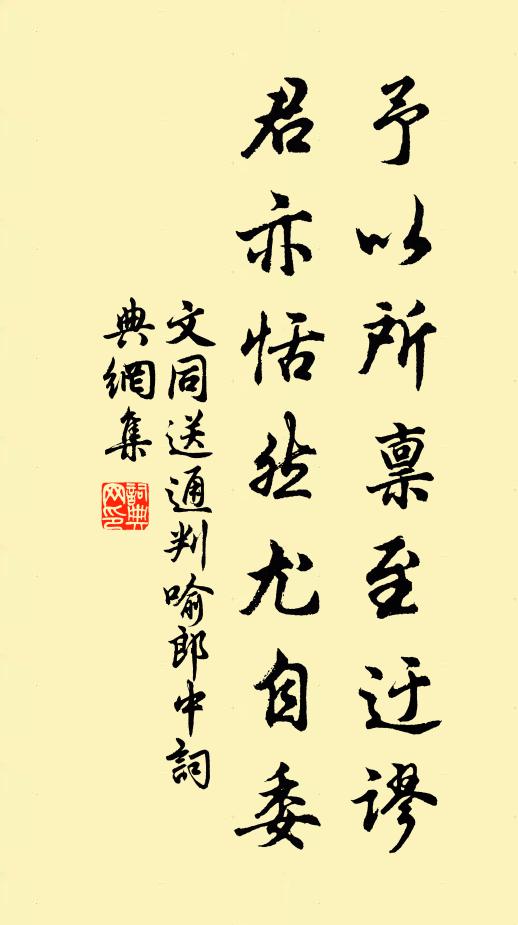 予以所禀至迂謬
君亦恬然尤自委
文同送通判喻郎中詞
典網集
詞典
网印